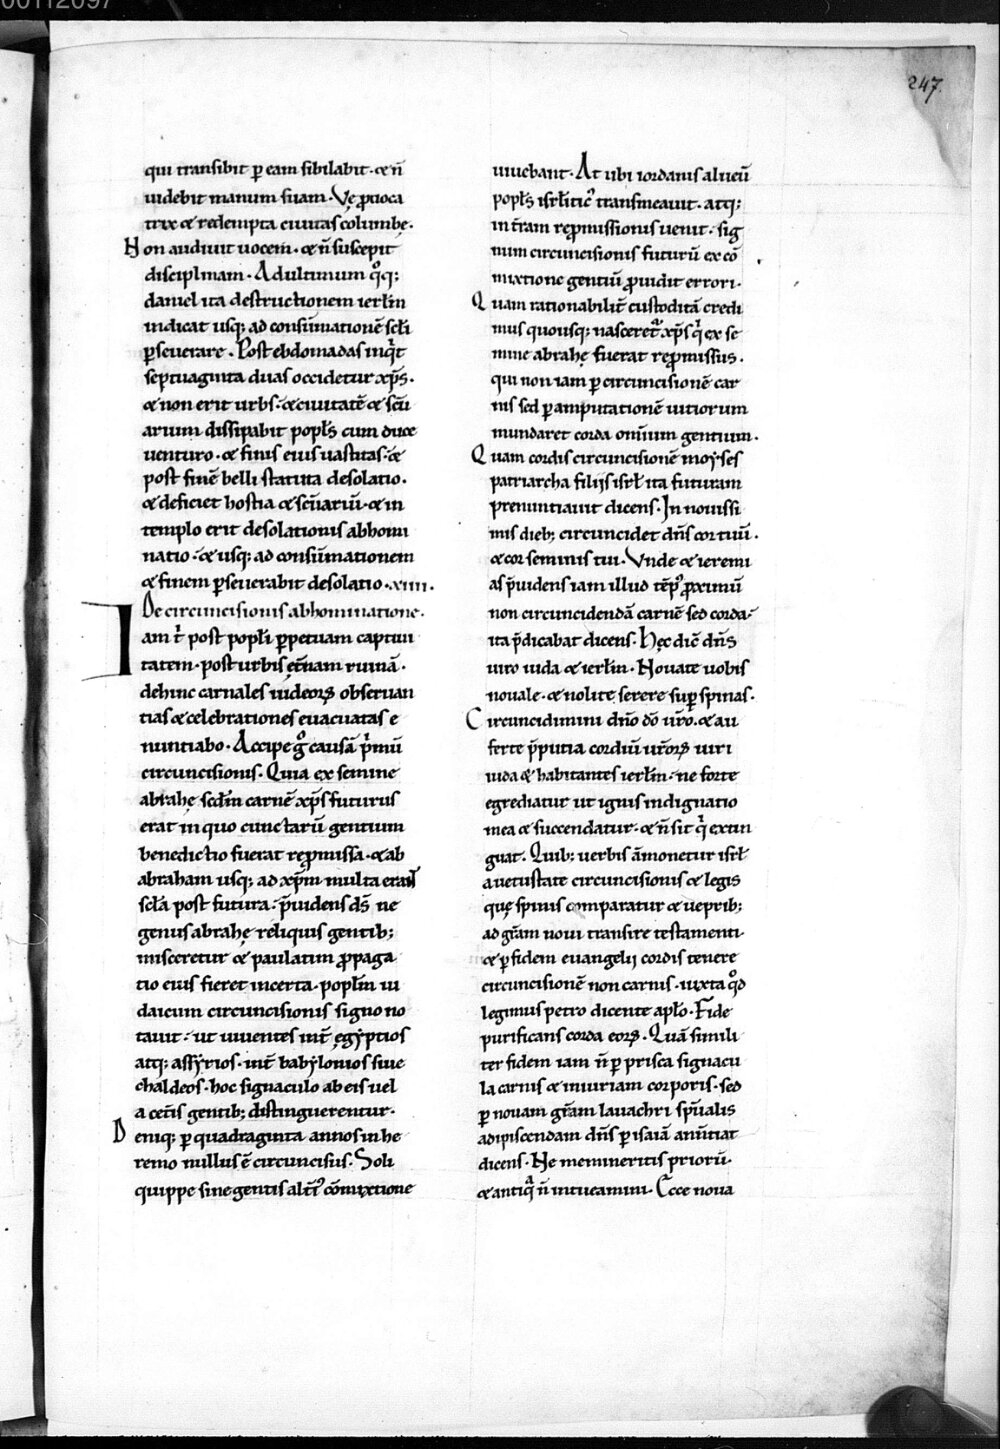 00112097
247.
qui transibit ꝑ eam sibilabit · & n̄
uidebit manum suam · Vę ꝓuoca
trix & redempta ciuitas columbę ·
Non audiuit uocem · & n̄ suscepit
disciplinam · Ad ultimum qͦq;
daniel ita destructionem ierłm
indicat usq; ad consūmationē sc̄li
ꝑseuerare · Post ebdomadas inqͥt
septuaginta duas occidetur xp̄s ·
& non erit urbs · & ciuitatē & scū
arium dissipabit popłs cum duce
uenturo · & finis eius uastitas · &
post finē belli statuta desolatio ·
& deficiet hostia & scūariū · & in
templo erit desolationis abhomi
natio · & usq; ad consūmationem
& finem ꝑseuerabit desolatio · xiiii ·
De circumcisionis abhominatione ·
Iam t̄ post popłi ꝑpetuam captiui
tatem · post urbis et̄nam ruinā ·
dehinc carnales iudeoꝝ obseruan
tias & celebrationes euacuatas e
nuntiabo · Accipe gͦ causā pͥmū
circumcisionis · Quia ex semine
abrahę scdm̄ carnē xp̄s futurus
erat in quo cunctarū gentium
benedictio fuerat reꝓmissa · & ab
abraham usq; ad xp̄m multa erant
scl̄a post futura · p̄uidens ds̄ ne
genus abrahę reliquis gentib;
misceretur & paulatim ꝓpaga
tio eius fieret incerta · popłm iu
daicum circumcisionis signo no
tauit · ut uiuentes int̄ ęgyptios
atq; assyrios · int̄ babylonios siue
chaldeos · hoc signaculo ab eis uel
a cet̄is gentib; distinguerentur ·
Deniq; ꝑ quadraginta annos in he
remo nullus ē circumcisus · Soli
quippe sine gentis alt̄iꝰ cōmixtione
uiuebant · At ubi iordanis alueū
popłs isrłiticꝰ transmeauit · atq;
in t̄ram reꝓmissionis uenit · sig
num circumcisionis futurū ex cō
mixtione gentiū ꝓuidit errori ·
Quam rationabilit̄ custoditā credi
mus quousq; nasceret᷑ xp̄s qͥ ex se
mine abrahę fuerat reꝓmissus ·
qui non iam ꝑ circumcisionē car
nis sed ꝑ amputationē uitiorum
mundaret corda omīum gentium ·
Quam cordis circumcisionē moyses
patriarcha filijs isrł ita futuram
prenuntiauit dicens · In nouissi
mis dieb; circumcidet dn̄s cor tuū ·
& cor seminis tui · Vnde & ieremi
as p̄uidens iam illud tēpꝰ ꝓximū
non circumcidendā carnē sed corda ·
ita p̄dicabat dicens · Hęc dic̄ dn̄s
uiro iuda & ierłm · Nouate uobis
nouale · & nolite serere suꝑ spinas ·
Circumcidimini dn̄o dō ur̄o · & au
ferte p̄putia cordiū ur̄oꝝ uiri
iuda & habitantes ierłm · ne forte
egrediatur ut ignis indignatio
mea & succendatur · & n̄ sit qͥ extin
guat · Quib; uerbis āmonetur isrł
a uetustate circumcisionis & legis
quę spinis comparatur & ueprib;
ad gr̄am noui transire testamenti ·
& ꝑ fidem euangelij cordis tenere
circumcisionē non carnis · iuxta qͦd
legimus petro dicente apło · Fide
purificans corda eoꝝ · Quā simili
ter fidem iam n̄ ꝑ prisca signacu
la carnis & iniuriam corporis · sed
ꝑ nouam gr̄am lauachri sp̄ualis
adipiscendam dn̄s ꝑ isaiā anūtiat
dicens · Ne memineritis priorū ·
& antiqͣ n̄ intueamini · Ecce noua